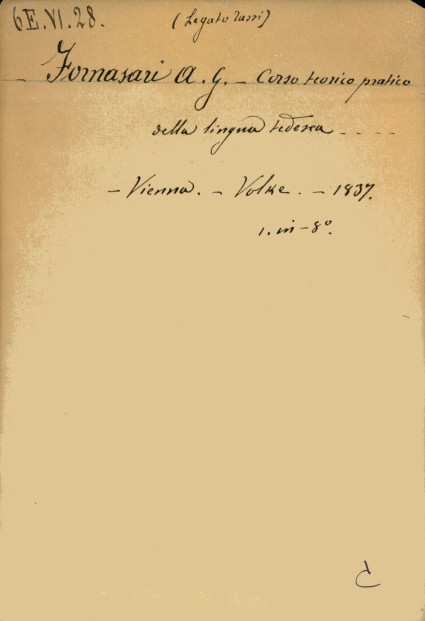 6E.VI.28. (Legato Tassi)
– Fornasari A. G. – Corso teorico pratico
della lingua tedesca – – – –
– Vienna. – Volke. – 1837.
1. in – 8°.